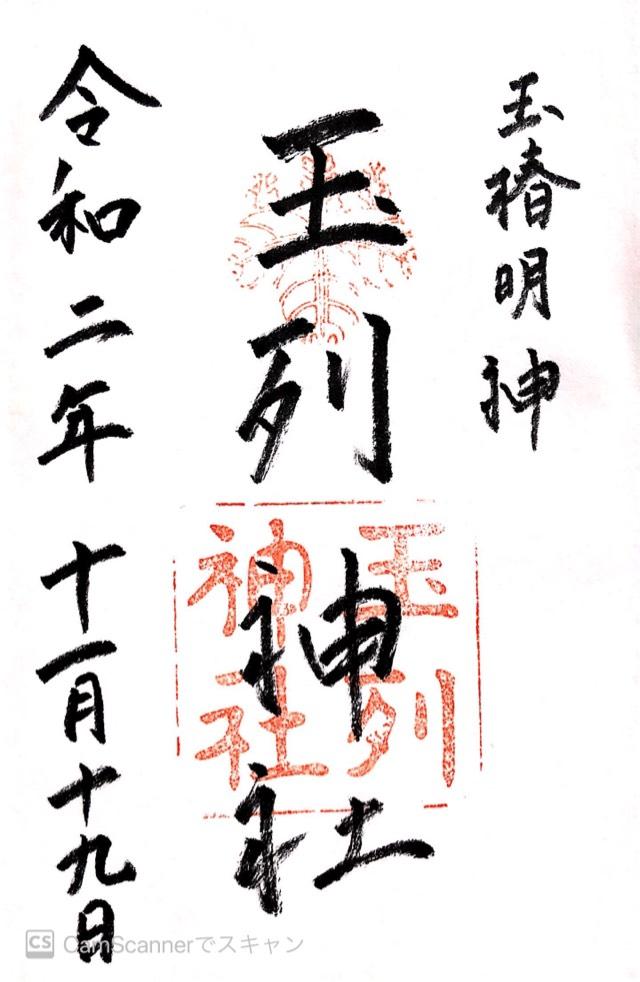 玉椿明神
玉列神社
玉列
神社
令和二年十一月十九日
CS CamScannerでスキャン